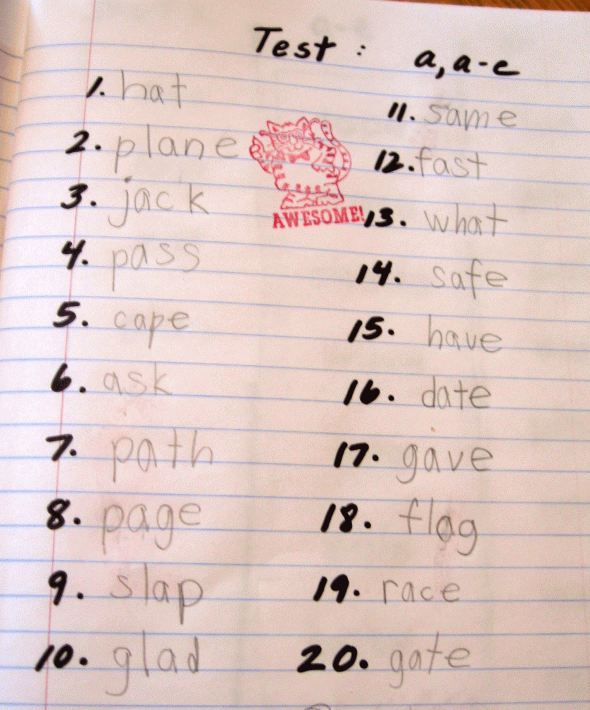 Test : a, a-e
1. hat
2. plane
3. jack
4. pass
5. cape
6. ask
7. path
8. page
9. slap
10. glad
AWESOME!
11. same
12. fast
13. what
14. safe
15. have
16. date
17. gave
18. flag
19. race
20. gate